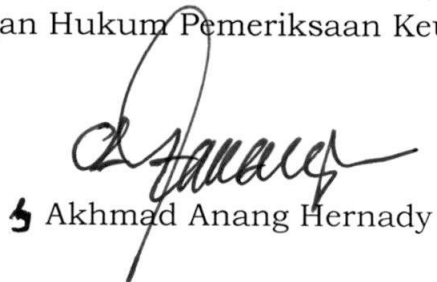 an Hukum Pemeriksaan Keu
Akhmad Anang Hernady